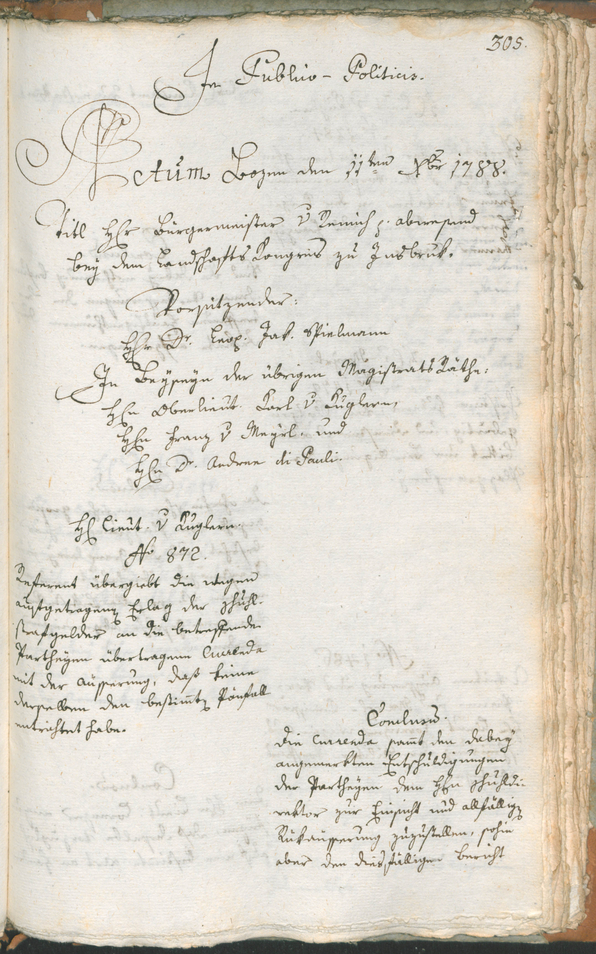 305.
In Publico-Politicis.
Actum Bozen den 11ten Xbr 1788.
Titl Hr Bürgermeister v Reinisch p. abwesend
bey dem Landschafts Kongres zu Insbruk.
Vorsitzender:
Hr Dr. Leop. Jak. Spielmann
In Beyseyn der übrigen Magistrats Räthe:
Hrn Oberlieut. Karl v Kuglern,
Hrn Franz v Mayrl. und
Hrn Dr. Andree di Pauli.
H Lieut. v Kuglern.
No 872.
Referent übergiebt die wegen
aufgetragenen Erlag der Schuhl-
strafgelder an die betreffende
Partheyen übertragene Currenda
mit der Äusserung, daß keine
derselben den bestimmten Pönfall
entrichtet habe.
Conclusum.
Die Currenda samt den dabey
angemerkten Entschuldigungen
der Partheyen dem Hrn Schuhldi-
rektor zur Einsicht und allfälligen
Rükäusserung zuzustellen, sohin
aber den diesfälligen Bericht